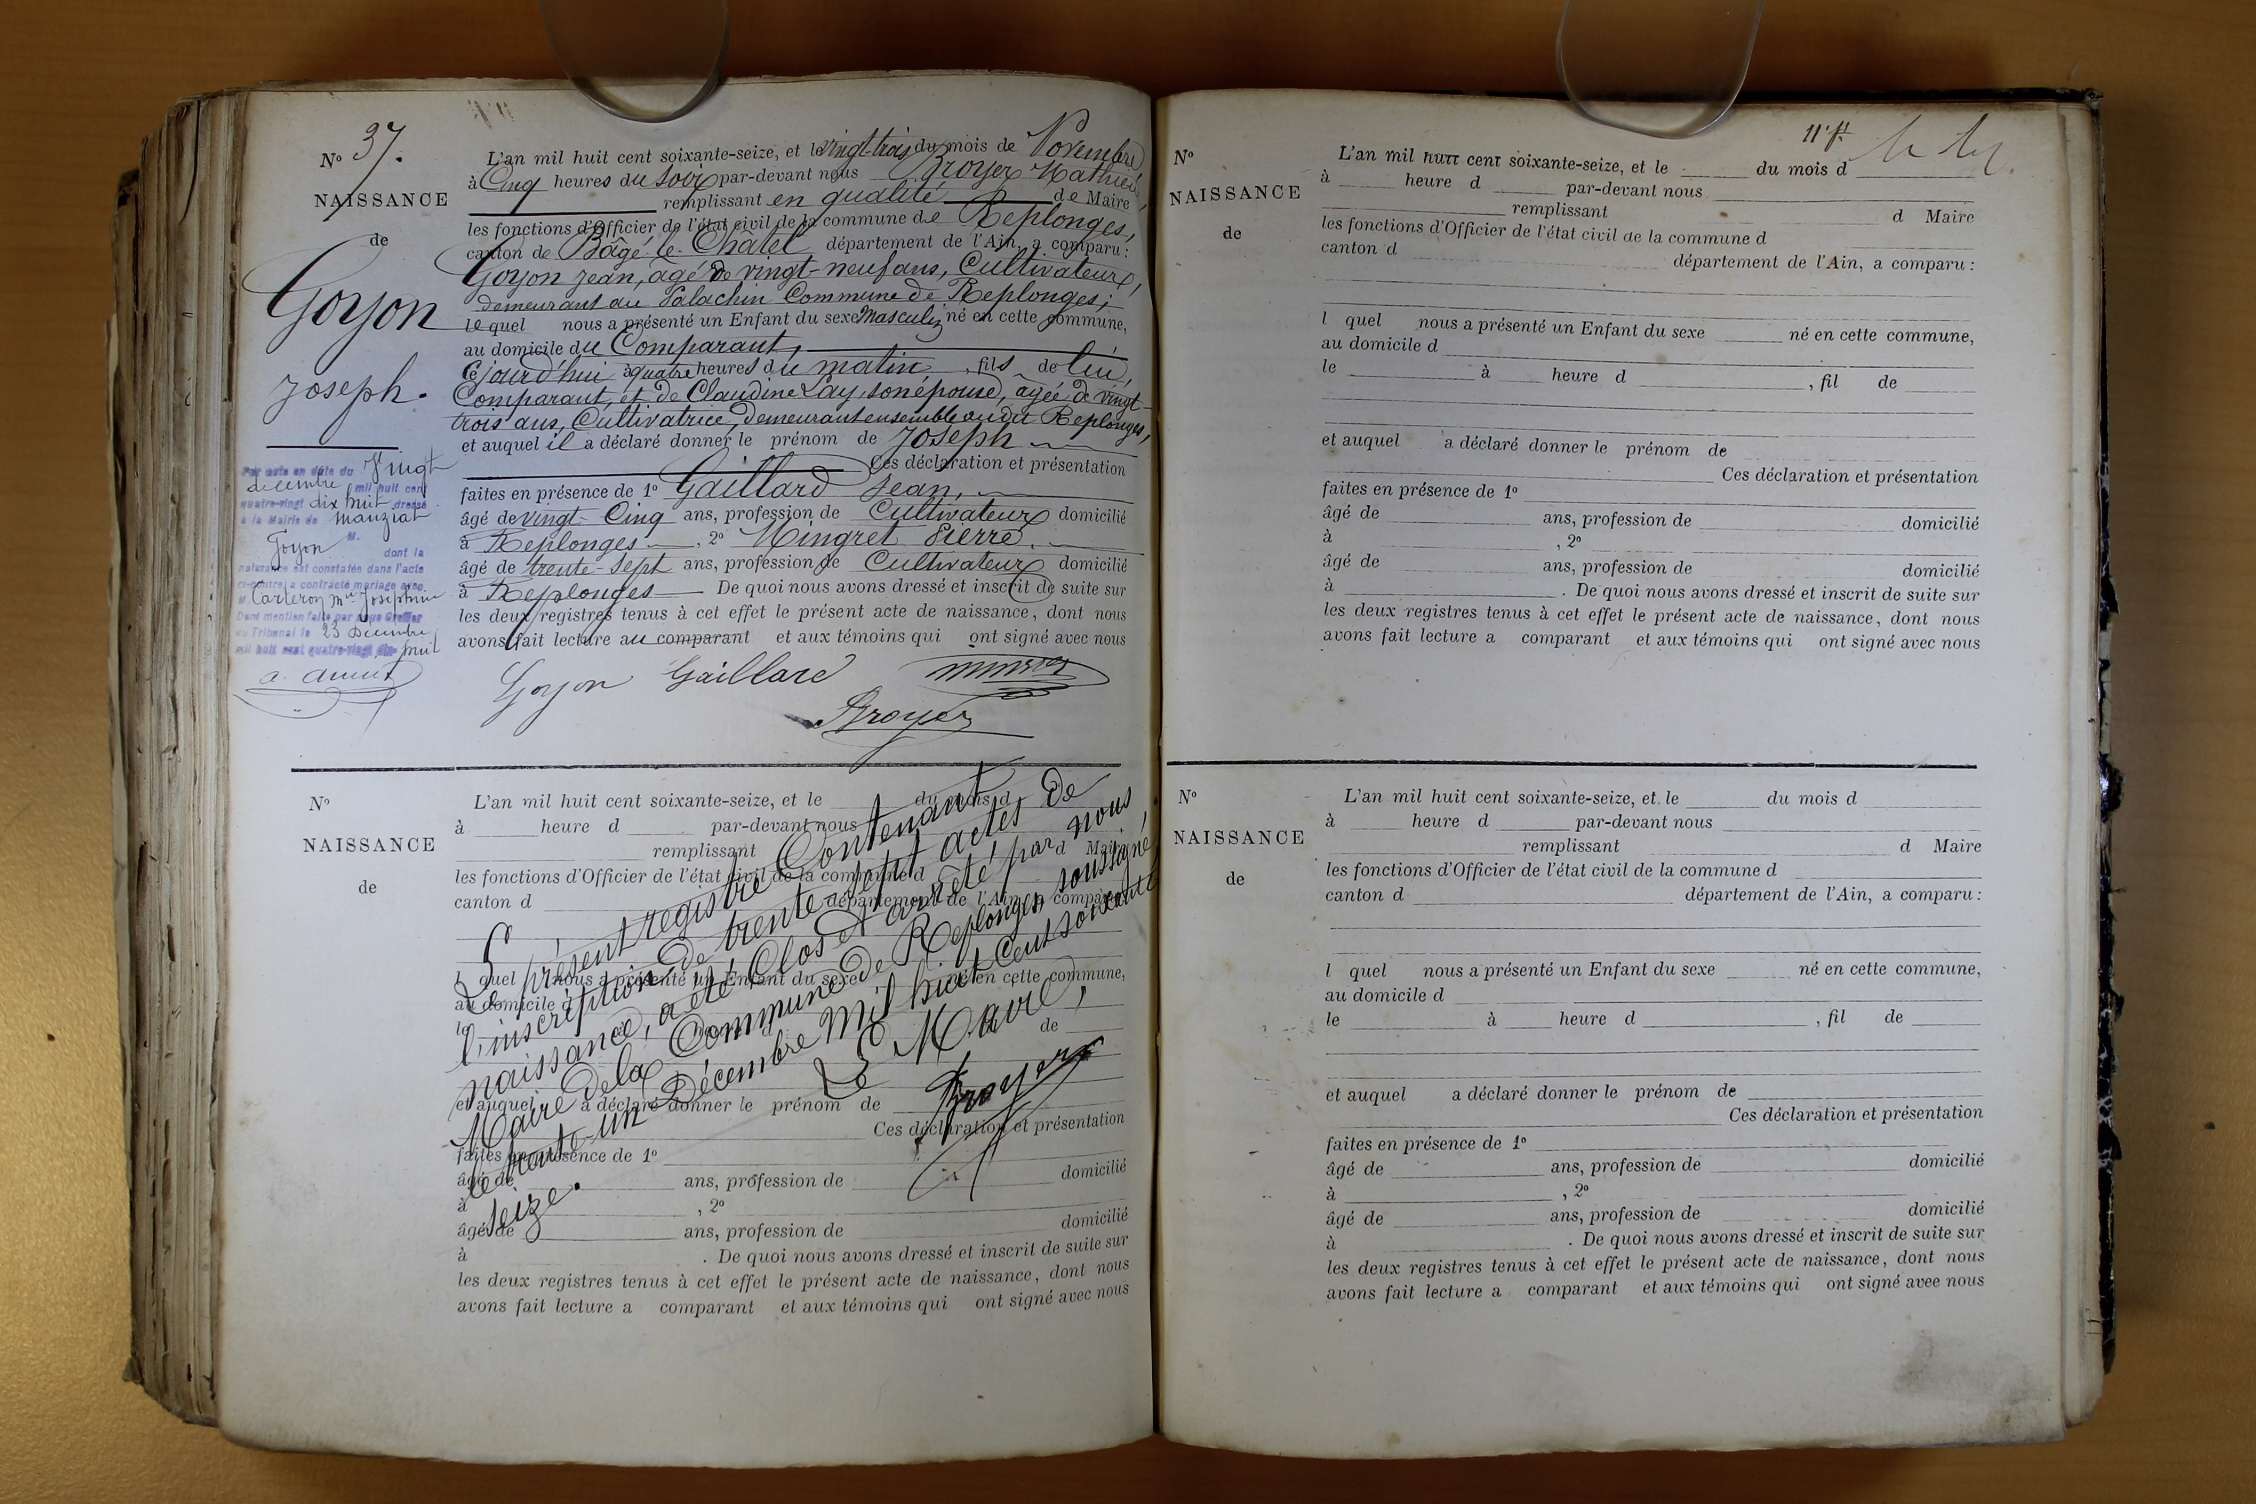 N° 37.
NAISSANCE
de
Goyon
Joseph.
L'an mil huit cent soixante-seize, et le vingt-trois du mois de Novembre
à Cinq heures du soir par-devant nous Broyer Mathieu
remplissant en qualité de Maire,
les fonctions d'Officier de l'état civil de la commune de Replonges,
canton de Bâgé-le-Chatel département de l'Ain, a comparu:
Goyon Jean, agé de vingt-neuf ans, Cultivateur,
demeurant au Palachin Commune de Replonges;
lequel nous a présenté un Enfant du sexe Masculin né en cette commune,
au domicile du Comparant,
Cejourd'hui à quatre heures du matin, fils de lui,
Comparant, et de Claudine Lay, son épouse, agée de vingt-
trois ans, Cultivatrice, demeurant ensemble audit Replonges,
et auquel il a déclaré donner le prénom de Joseph
Ces déclaration et présentation
faites en présence de 1° Gaillard Jean,
âgé de vingt-Cinq ans, profession de Cultivateur domicilié
à Replonges, 2° Mingret Pierre,
âgé de trente-sept ans, profession de Cultivateur domicilié
à Replonges. De quoi nous avons dressé et inscrit de suite sur
les deux registres tenus à cet effet le présent acte de naissance, dont nous
avons fait lecture au comparant et aux témoins qui ont signé avec nous
Goyon Gaillard
Broyer
Par acte en date du Vingt
decembre mil huit cent
quatre-vingt dix huit dressé
à la Mairie de Manziat
M.
Goyon dont la
naissance est constatée dans l'acte
ci-contre, a contracté mariage avec
M Carteron Mie Joséphine
Dont mention faite par nous Greffier
du Tribunal le 23 Décembre
mil huit cent quatre-vingt dix huit
N°
NAISSANCE
de
L'an mil huit cent soixante-seize, et le du mois d
à heure d par-devant nous
remplissant d Maire
les fonctions d'Officier de l'état civil de la commune d
canton d département de l'Ain, a comparu:
l quel nous a présenté un Enfant du sexe né en cette commune,
au domicile d
le
de
et auquel a déclaré donner le prénom de
Ces déclaration et présentation
faites en présence de 1°
âgé de ans, profession de domicilié
à , 2°
âgé de ans, profession de domicilié
à . De quoi nous avons dressé et inscrit de suite sur
les deux registres tenus à cet effet le présent acte de naissance, dont nous
avons fait lecture a comparant et aux témoins qui ont signé avec nous
Le présent registre Contenant
l'inscription de trente-sept actes de
naissance, a été Clos et arrêté par nous
Maire de la Commune de Replonges soussigné,
le trente-un Décembre mil huit Cent soixante
seize.
Le Maire,
Broyer
11e ft
N°
NAISSANCE
de
L'an mil huit cent soixante-seize, et le du mois d
à heure d par-devant nous
remplissant d Maire
les fonctions d'Officier de l'état civil de la commune d
canton d département de l'Ain, a comparu:
l quel nous a présenté un Enfant du sexe né en cette commune,
au domicile d
le à heure d , fil de
et auquel a déclaré donner le prénom de
Ces déclaration et présentation
faites en présence de 1°
âgé de ans, profession de domicilié
à , 2°
âgé de ans, profession de domicilié
à . De quoi nous avons dressé et inscrit de suite sur
les deux registres tenus à cet effet le présent acte de naissance, dont nous
avons fait lecture a comparant et aux témoins qui ont signé avec nous
N°
NAISSANCE
de
L'an mil huit cent soixante-seize, et le du mois d
à heure d par-devant nous
remplissant d Maire
les fonctions d'Officier de l'état civil de la commune d
canton d département de l'Ain, a comparu:
l quel nous a présenté un Enfant du sexe né en cette commune,
au domicile d
le à heure d , fil de
et auquel a déclaré donner le prénom de
Ces déclaration et présentation
faites en présence de 1°
âgé de ans, profession de domicilié
à , 2°
âgé de ans, profession de domicilié
à . De quoi nous avons dressé et inscrit de suite sur
les deux registres tenus à cet effet le présent acte de naissance, dont nous
avons fait lecture a comparant et aux témoins qui ont signé avec nous